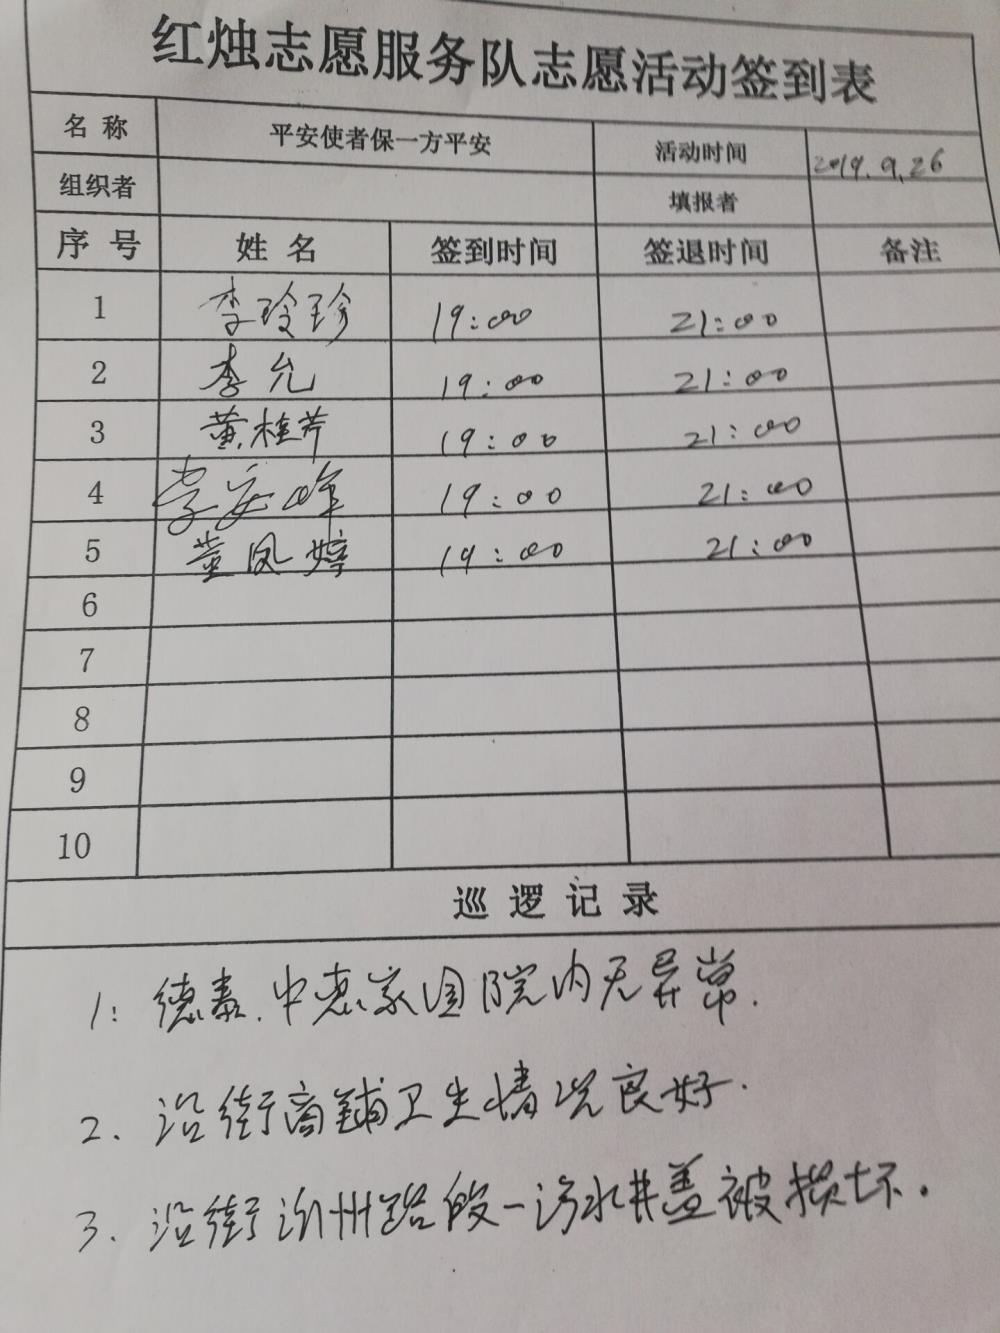 红烛志愿服务队志愿活动签到表
名 称 平安使者保一方平安 活动时间 2019.9.26
组织者 填报者
序 号 姓 名 签到时间 签退时间 备注
1 李玲珍 19:00 21:00
2 李允 19:00 21:00
3 黄桂芹 19:00 21:00
4 李安峰 19:00 21:00
5 董凤婷 19:00 21:00
6
7
8
9
10
巡 逻 记 录
1: 德泰.中惠家园院内无异常.
2. 沿街商铺卫生情况良好.
3. 沿街汾州路段一污水井盖被损坏.